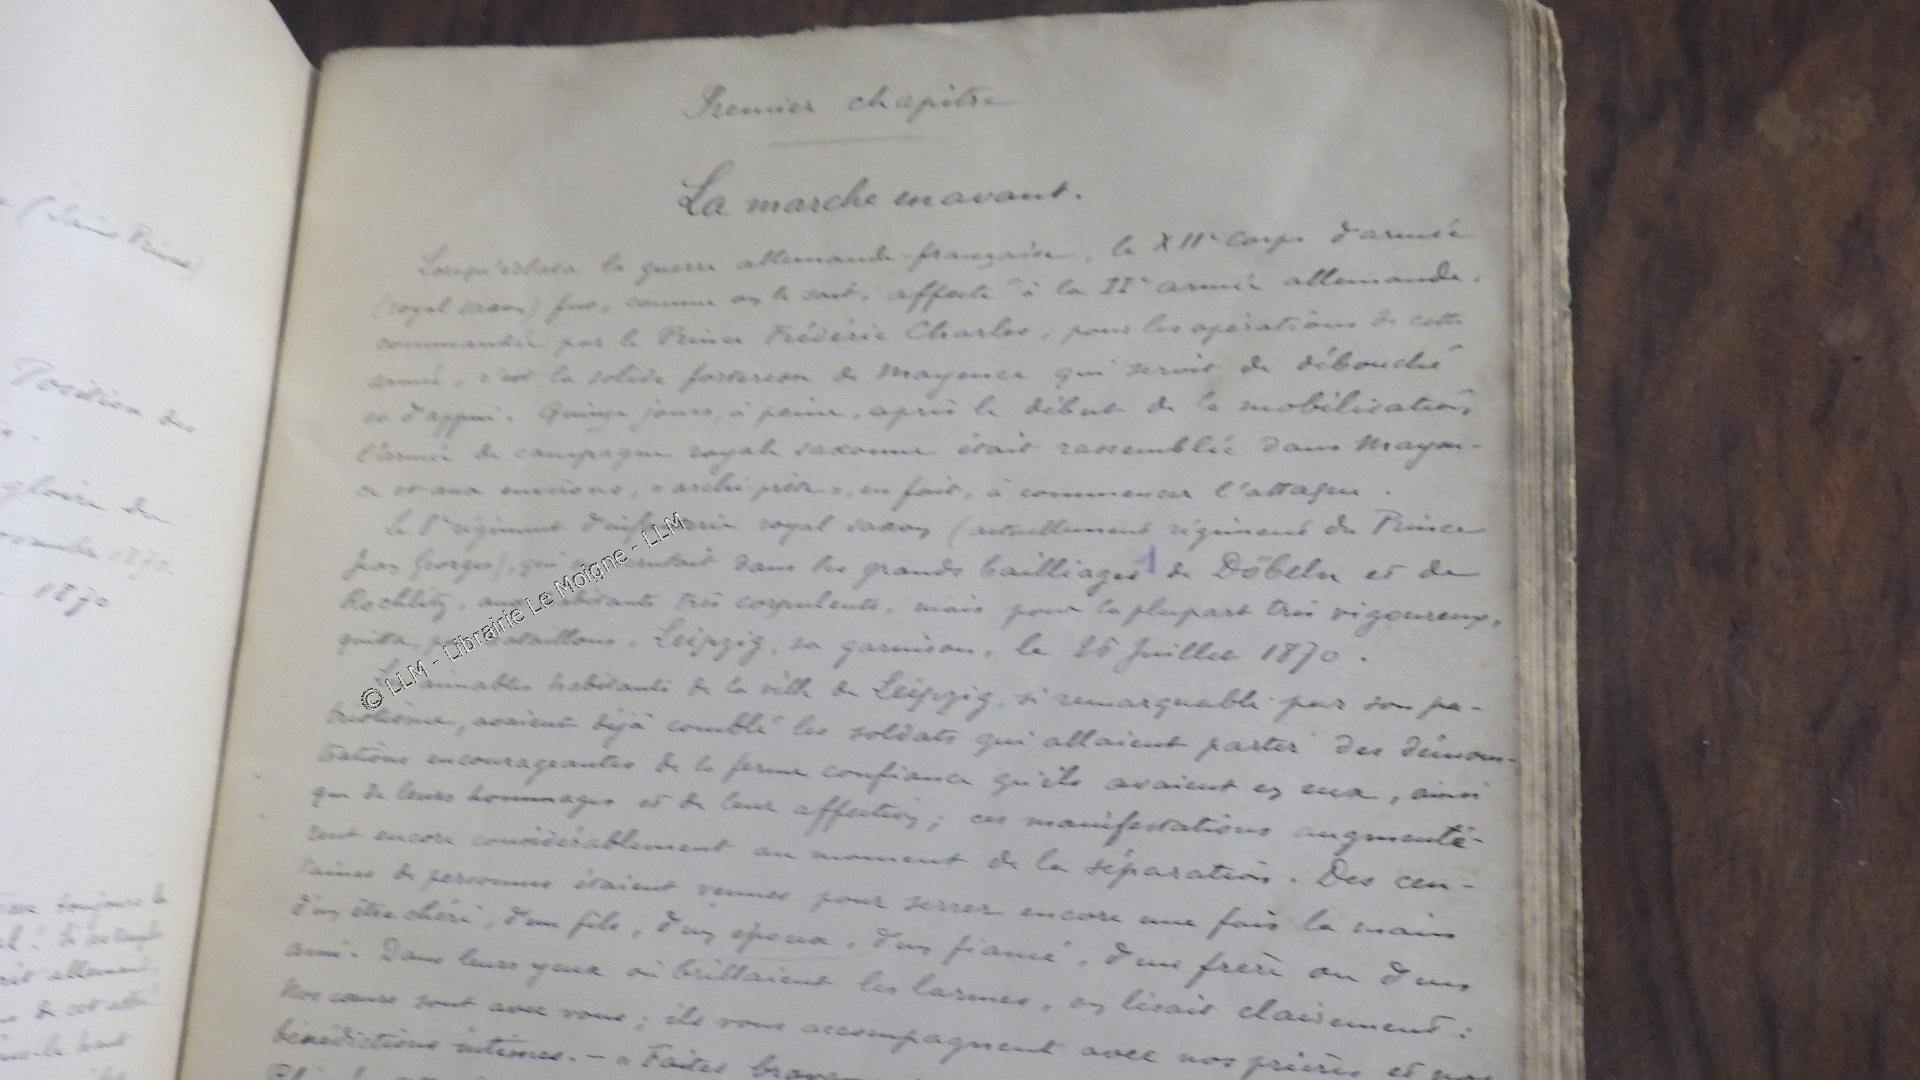 Premier chapitre
La marche en avant.
Lorsqu'éclata la guerre allemande-française, le XIIe Corps d'armée
(royal saxon) fut, comme on le sait, affecté à la IIe armée allemande,
commandée par le Prince Frédéric Charles; pour les opérations de cette
armée, c'est la solide forteresse de Mayence qui servit de débouché
et d'appui. Quinze jours, à peine, après le début de la mobilisation,
l'armée de campagne royale saxonne était rassemblée dans Mayen-
ce et aux environs, « archi-prête », en fait, à commencer l'attaque.
Le 8e régiment d'infanterie royal saxon (actuellement régiment du Prince
Jean Georges), qui dans les grands bailliages 1 de Döbeln et de
Rochlitz, habitants très corpulents, mais pour la plupart très vigoureux,
quitta, par bataillons, Leipzig, sa garnison, le 26 Juillet 1870.
aimables habitants de la ville de Leipzig, si remarquable par son pa-
triotisme, avaient déjà comblé les soldats qui allaient partir des démons-
trations encourageantes de la ferme confiance qu'ils avaient en eux, ainsi
que de leurs hommages et de leur affection; ces manifestations augmentè-
rent encore considérablement au moment de la séparation. Des cen-
taines de personnes étaient venues pour serrer encore une fois la main
d'un être chéri, d'un fils, d'un époux, d'un fiancé, d'un frère ou d'un
ami. Dans leurs yeux où brillaient les larmes, on lisait clairement:
Nos cœurs sont avec vous; ils vous accompagnent avec nos prières et nos
bénédictions intimes. — « Faites
Position des
gloire du
novembre 1870.
1870
toujours le
allemand,
de cet
© LLM - Librairie Le Moigne - LLM